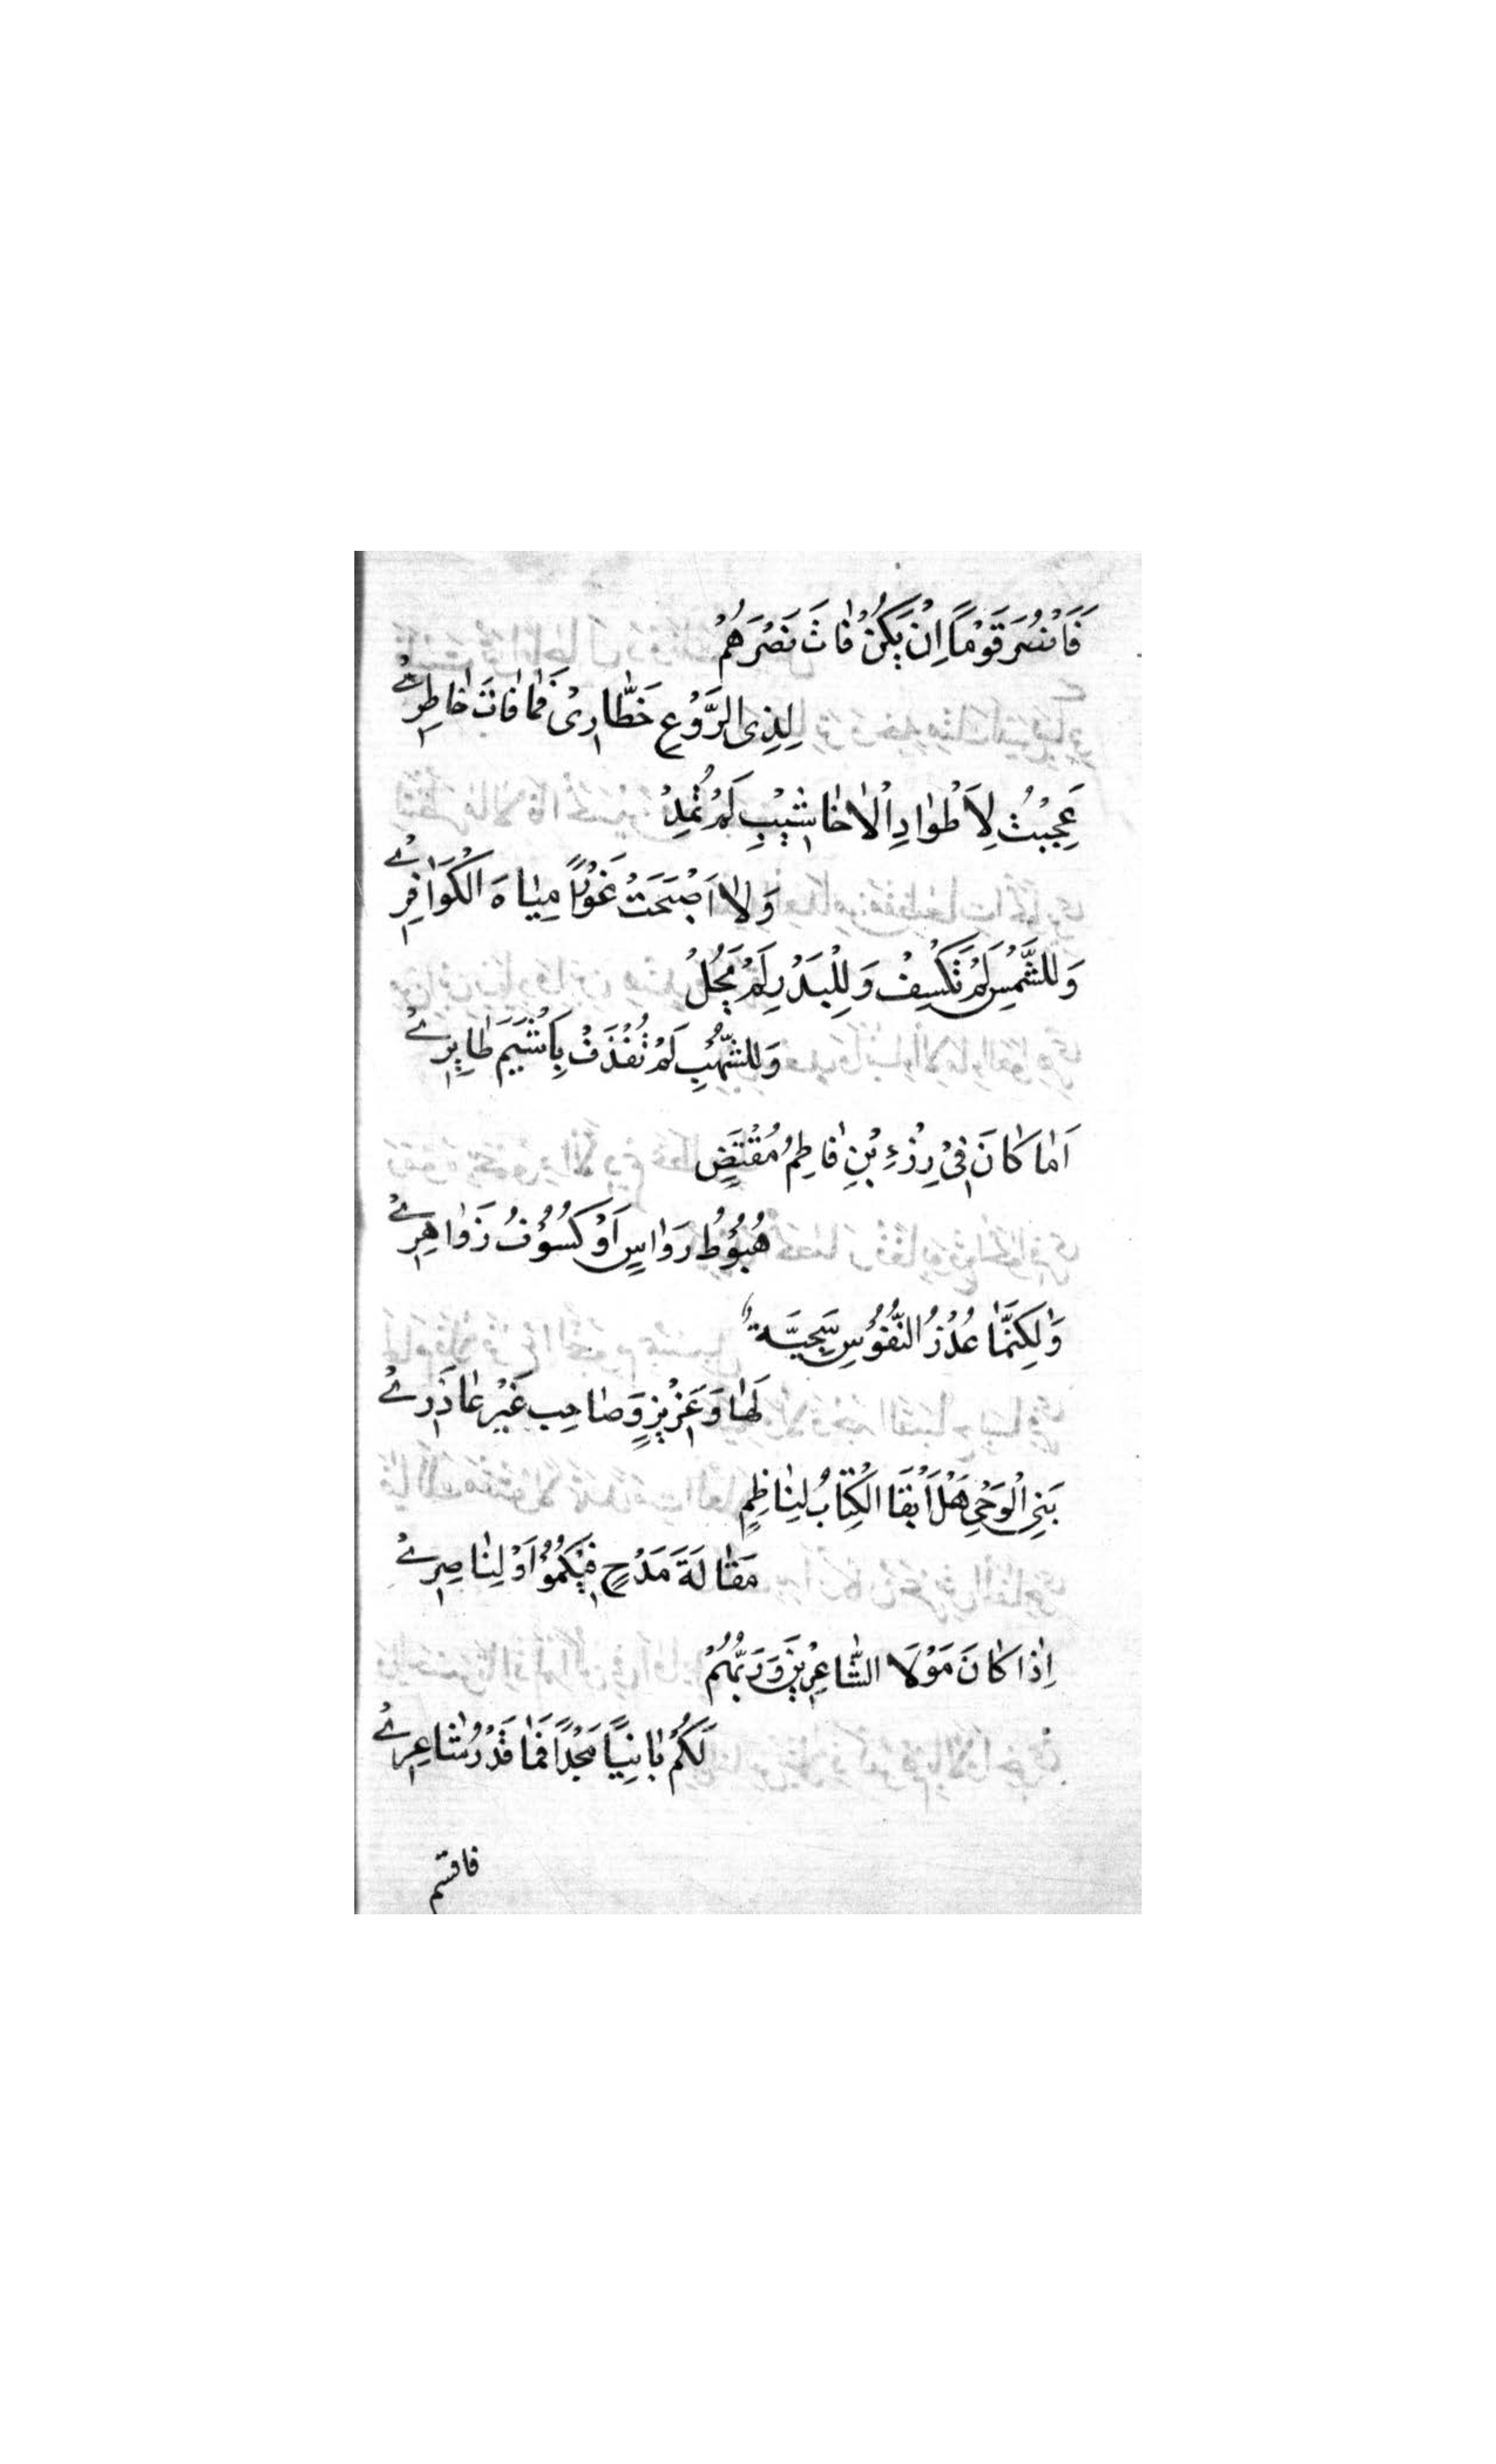 فَاَنْصُرَ قَوْمًا اِنْ يَكُنْ فَاتَ نَصْرَهُمْ
لِذِى الرَّوْعِ خَطَّارِىْ فَمَا فَاتَ خَاطِرِے
عَجِبْتُ لِاَطْوَادِ الْاَخَاشِيْبِ لَمْ تُمِدْ
وَلَا اَصْبَحَتْ غَوْرًا مِيَاهَ الْكَوَافِرِے
وَلِلشَّمْسِ لَمْ تَكْسِفْ وَلِلْبَدْرِ لَمْ يَحُلْ
وَلِلشُّهْبِ لَمْ تُقْذَفْ بِاَشْيَمَ طَايِرِے
اَمَا كَانَ فِىْ رِزْءِ بْنِ فَاطِمُ مُقْتَضٍ
هُبُوْطُ رَوَاسٍ اَوْ كُسُوْفُ زَوَاهِرِے
وَلٰكِنَّمَا عُذْرُ النُّفُوْسِ سَجِيَّةٌ
لَهَا وَعَزِيْزٍ وَصَاحِب غَيْرِ عَاذِرِے
بَنِى الْوَحْىِ هَلْ اَبْقَا الْكِتَابُ لِنَاظِمٍ
مَقَالَةَ مَدْحٍ فِيْكُمُوْا اَوْ لِنَاصِرِے
اِذَا كَانَ مَوْلَا الشَّاعِرِيْنَ وَرَبُّهُمْ
لَكُمْ بَانِيًا مَجْدًا فَمَا قَدْرُ شَاعِرِے
فاقسم